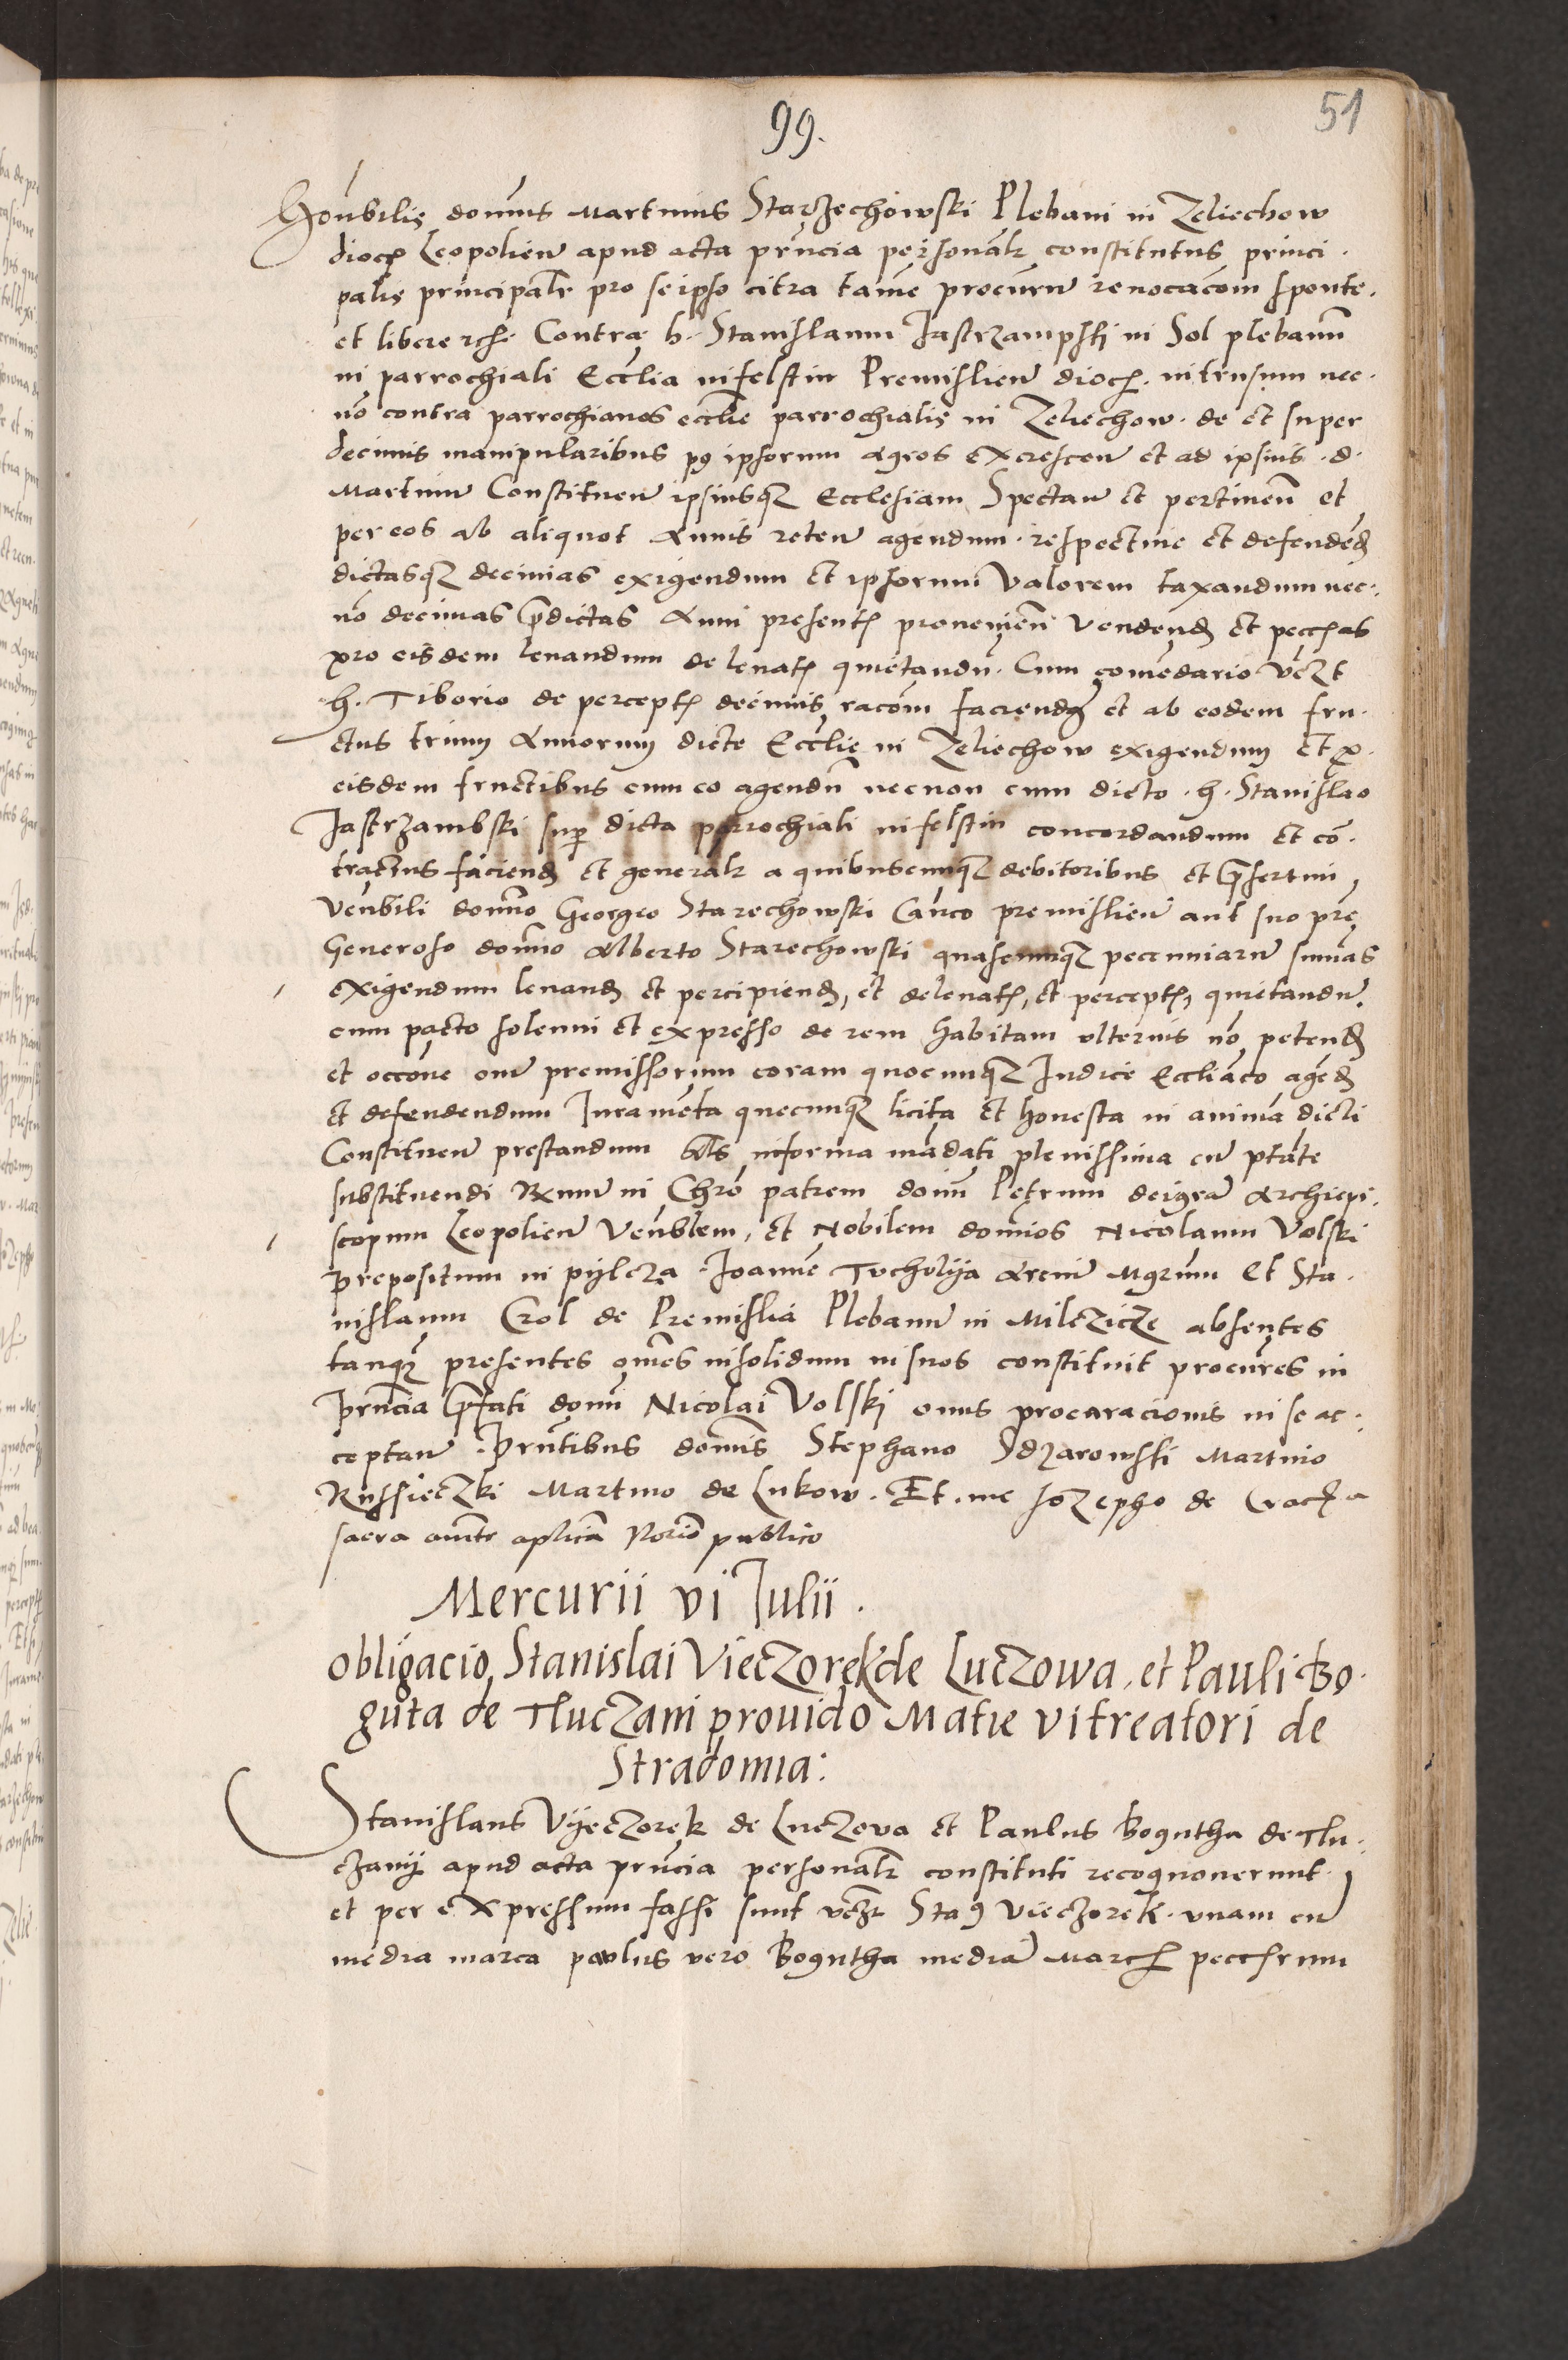 99.
51
Honbilis domnus Martinus Starzechowski Plebani in Zeliechow
dioc Leopolien apud acta prncia personalr constitutus princi
palis principalr pro se ipso citra tame procurn reuocacom sponte
et libere Contra h. Stanislaum Jastrzampski in Sol plebanu
in parrochiali Ecclia in felstin Premislien dioc. intrusum nec
no contra parrochianos ecclie parrochialis in Zeliechow. de et super
decimis manipularibus p ipsorum agros excrescen et ad ipsius d.
Martinu Constituen ipsiusq Ecclesiam Spectan et pertinen et
per eos ab aliquot Annis reten agendum respectiue et defended
dictasq decimas exigendum et ipsorum Valorem taxandum nec
no decimas pdictas Anni present prouenien Vendend et pecc as
pro eisdem leuandum de leuat quietandu. Cum comedario Vczt
h. Tiborio de percept decimis racom faciend et ab eodem fru
ctus trium Annorum dicte Ecclie in Zeliechow exigendum et p
eisdem fructibus cum eo agendu necnon cum dicto h. Stanislao
Jastrzambski sup dicta parrochiali in felstin concordandum et co
tractus faciend et generalr a quibuscunq debitoribus et psertim
Venbili domno Georgeo Starechowski Canco premislien aut suo pre
Generoso domno Alberto Starechowski quascunq peccuniaru sumas
exigendum leuand et percipiend, et de leuat, et percept, quietandu
cum pacto solenni et expresso de rem habitam vlterius no petend
et occone oim premissorum coram quocunq Judice Eccliaco aged
et defendendum Jurameta quecunq licita et honesta in anima dicti
Constituen prestandum in forma madati plenissima cu ptate
substituendi Rxmu in Chro patrem domn Petrum dei gra Archiepi
scopum Leopolien Venblem, et Nobilem domios Nicolaum Volski
prepositum in pylcza Joanne Tucholya Areniu Mgrum et Sta
nislaum Crol de Premislia Plebanu in Milczicze absentes
tanq presentes omes in solidum in suos constituit procures in
prncia pfati domi Nicolai Volski onus procaracionis in se ac
ceptan. Prntibus domis Stephano Idzarowski Martino
Russieczki Martino de Lukow. Et me Jozepho de Crac
sacra aucte aplica Norio publico
Mercurii vi Julii.
obligacio Stanislai Vieczorek de Luczowa, et Pauli Bo
guta de Tluczani prouido Matie vitreatori de
Stradomia:
Stanislaus Vyeczorek de Luczova et Paulus Bogutha de Tlu
czany apud acta prncia personalr constituti recognouerunt
et per expressum fassi sunt vczt Sta9 Vieczorek vnam cu
media marca paulus vero Bogutha media Marc pecc rum